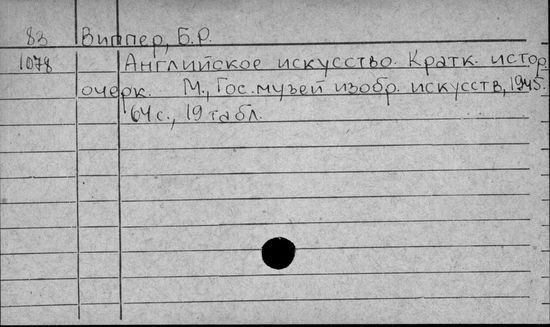 83 Виппер, Б.Р.
1078 Английское искусство. Кратк. истор.
очерк. М., Гос. музей изобр. искусств, 1945.
64 с., 19 табл.